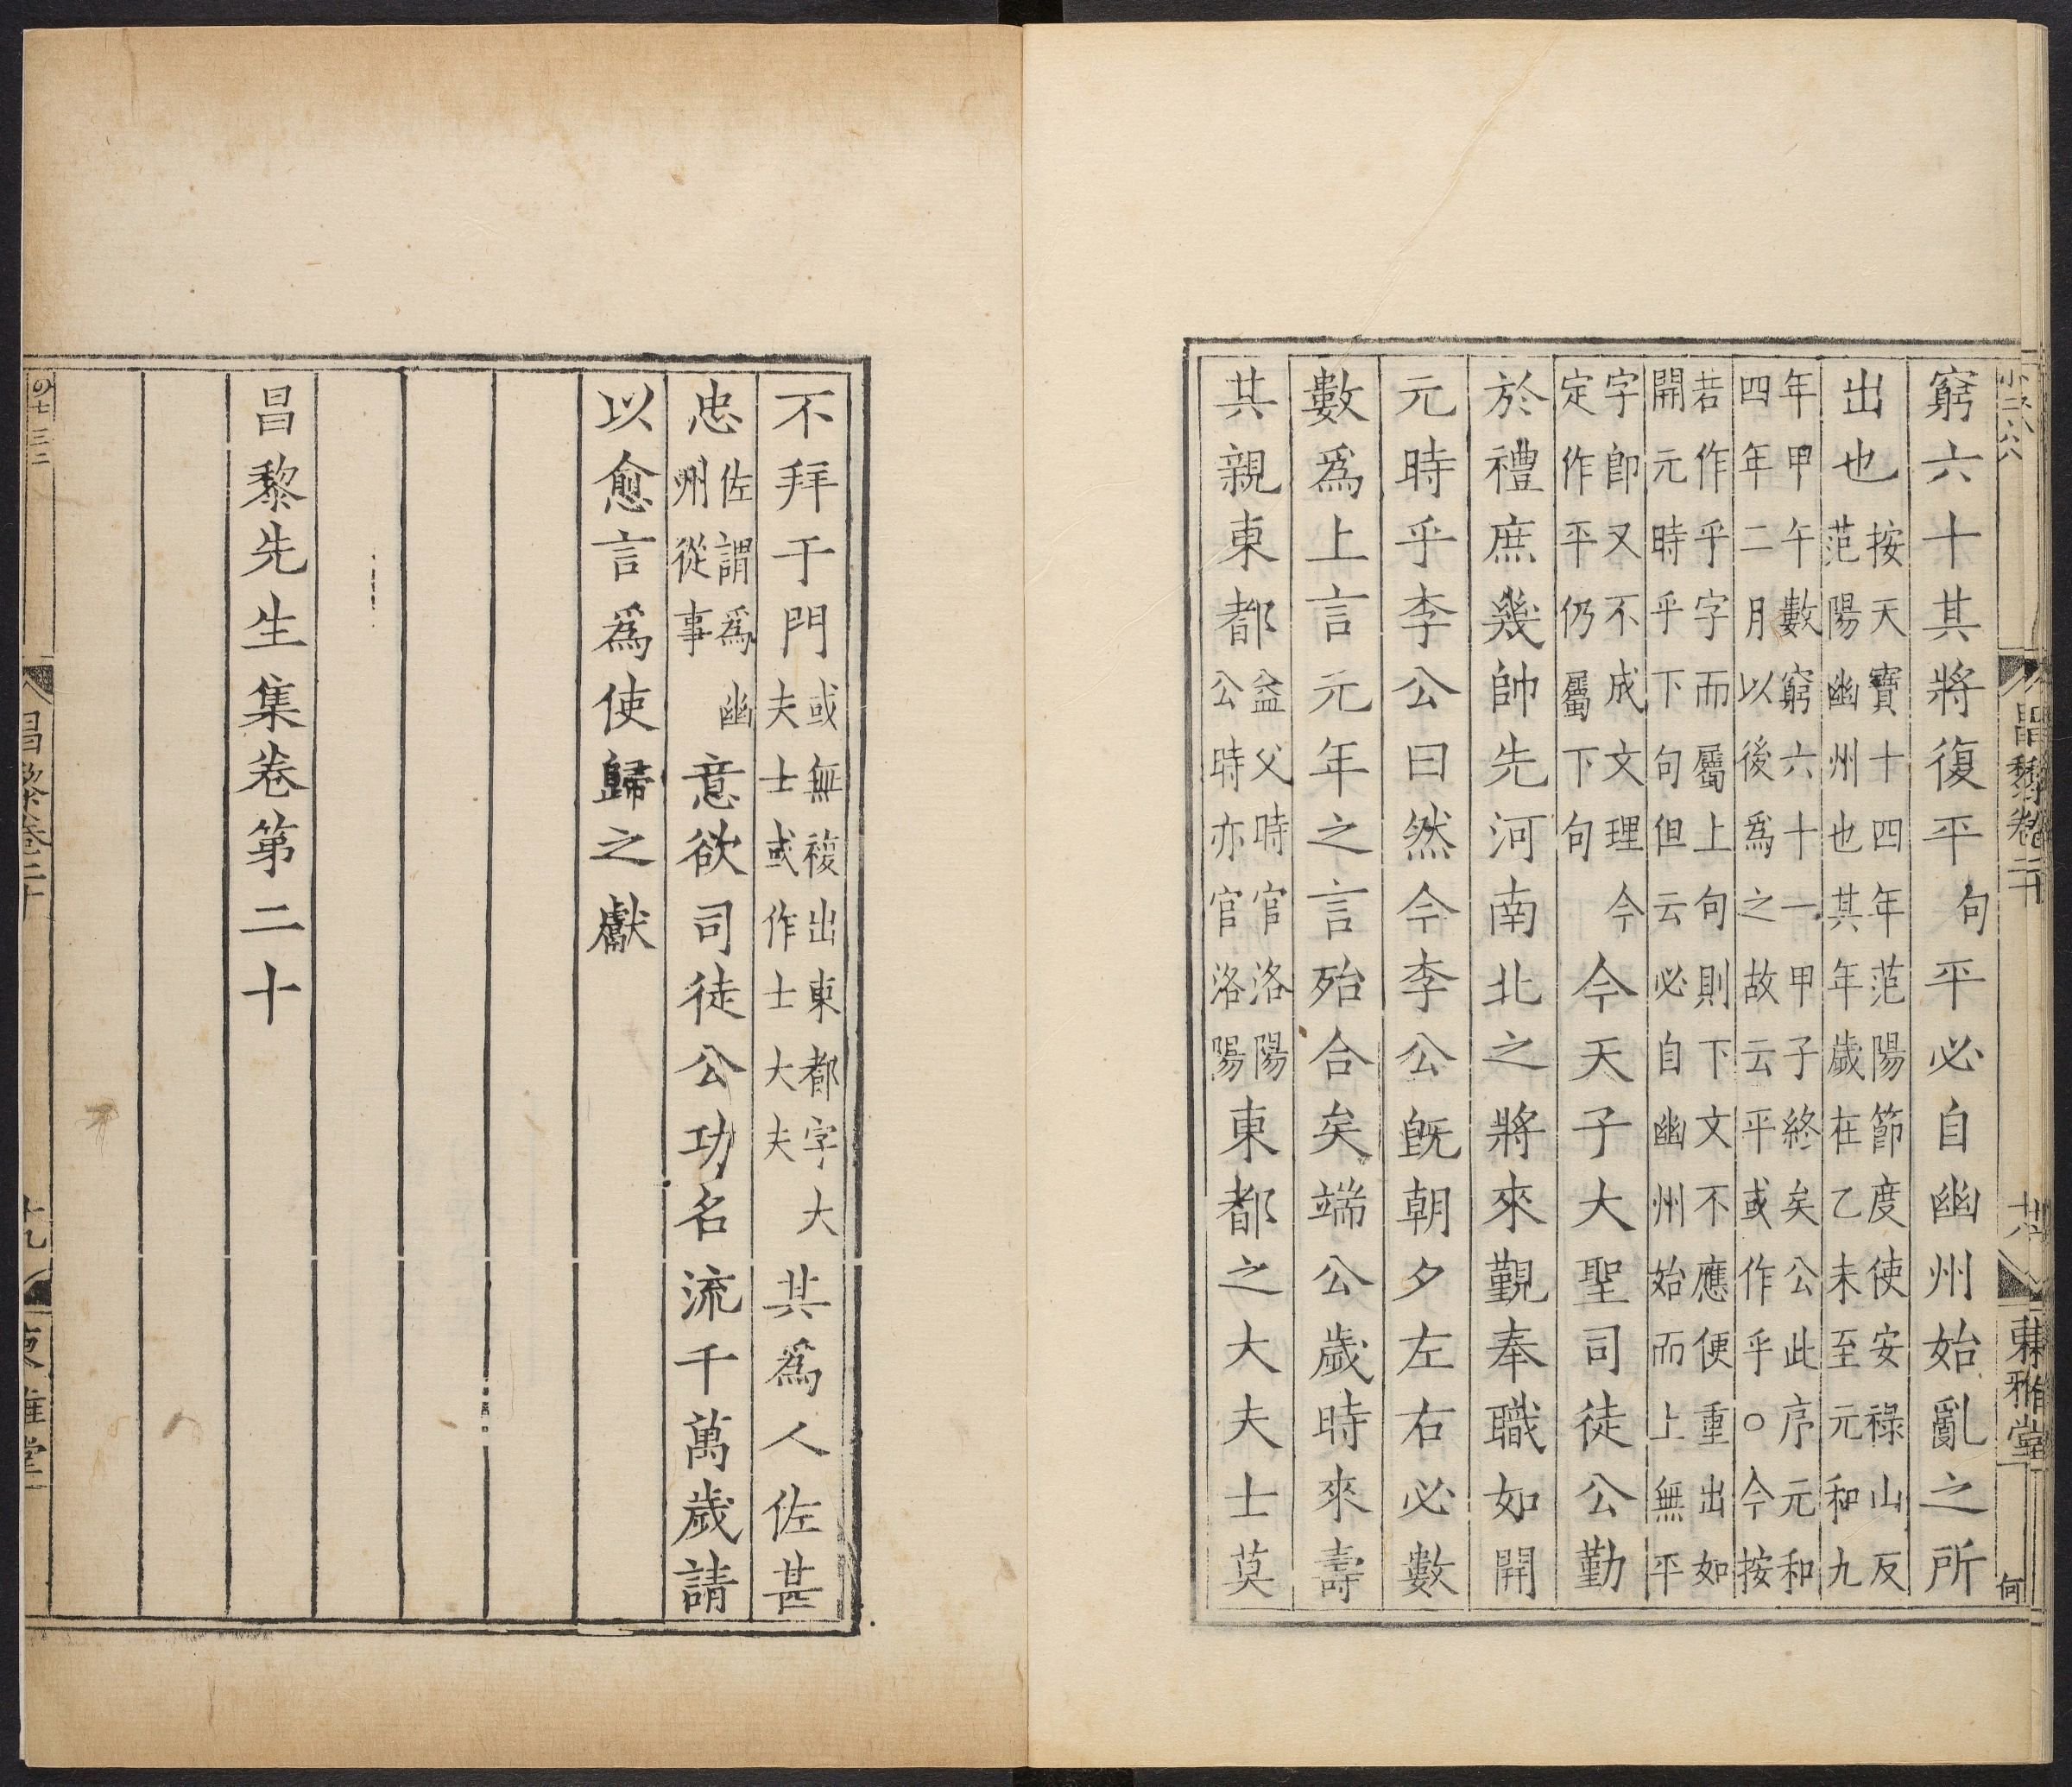 昌黎卷二十 東雅堂 何
窮六十其將復平句平必自幽州始亂之所
出也按天寶十四年范陽節度使安祿山反
范陽幽州也其年歲在乙未至元和九
年甲午數窮六十一甲子終矣公此序元和
四年二月以後爲之故云平或作乎○今按
若作乎字而屬上句則下文不應便重出如
開元時乎下句但云必自幽州始而上無平
字卽又不成文理今
定作平仍屬下句今天子大聖司徒公勤
於禮庶幾帥先河南北之將來覲奉職如開
元時乎李公曰然今李公旣朝夕左右必數
數爲上言元年之言殆合矣端公歲時來壽
其親東都益父時官洛陽
公時亦官洛陽東都之大夫士莫
不拜于門或無複出東都字大
夫士或作士大夫其爲人佐甚
忠佐謂爲幽
州從事意欲司徒公功名流千萬歲請
以愈言爲使歸之獻
昌黎先生集卷第二十
昌黎卷二十 十九 東雅堂